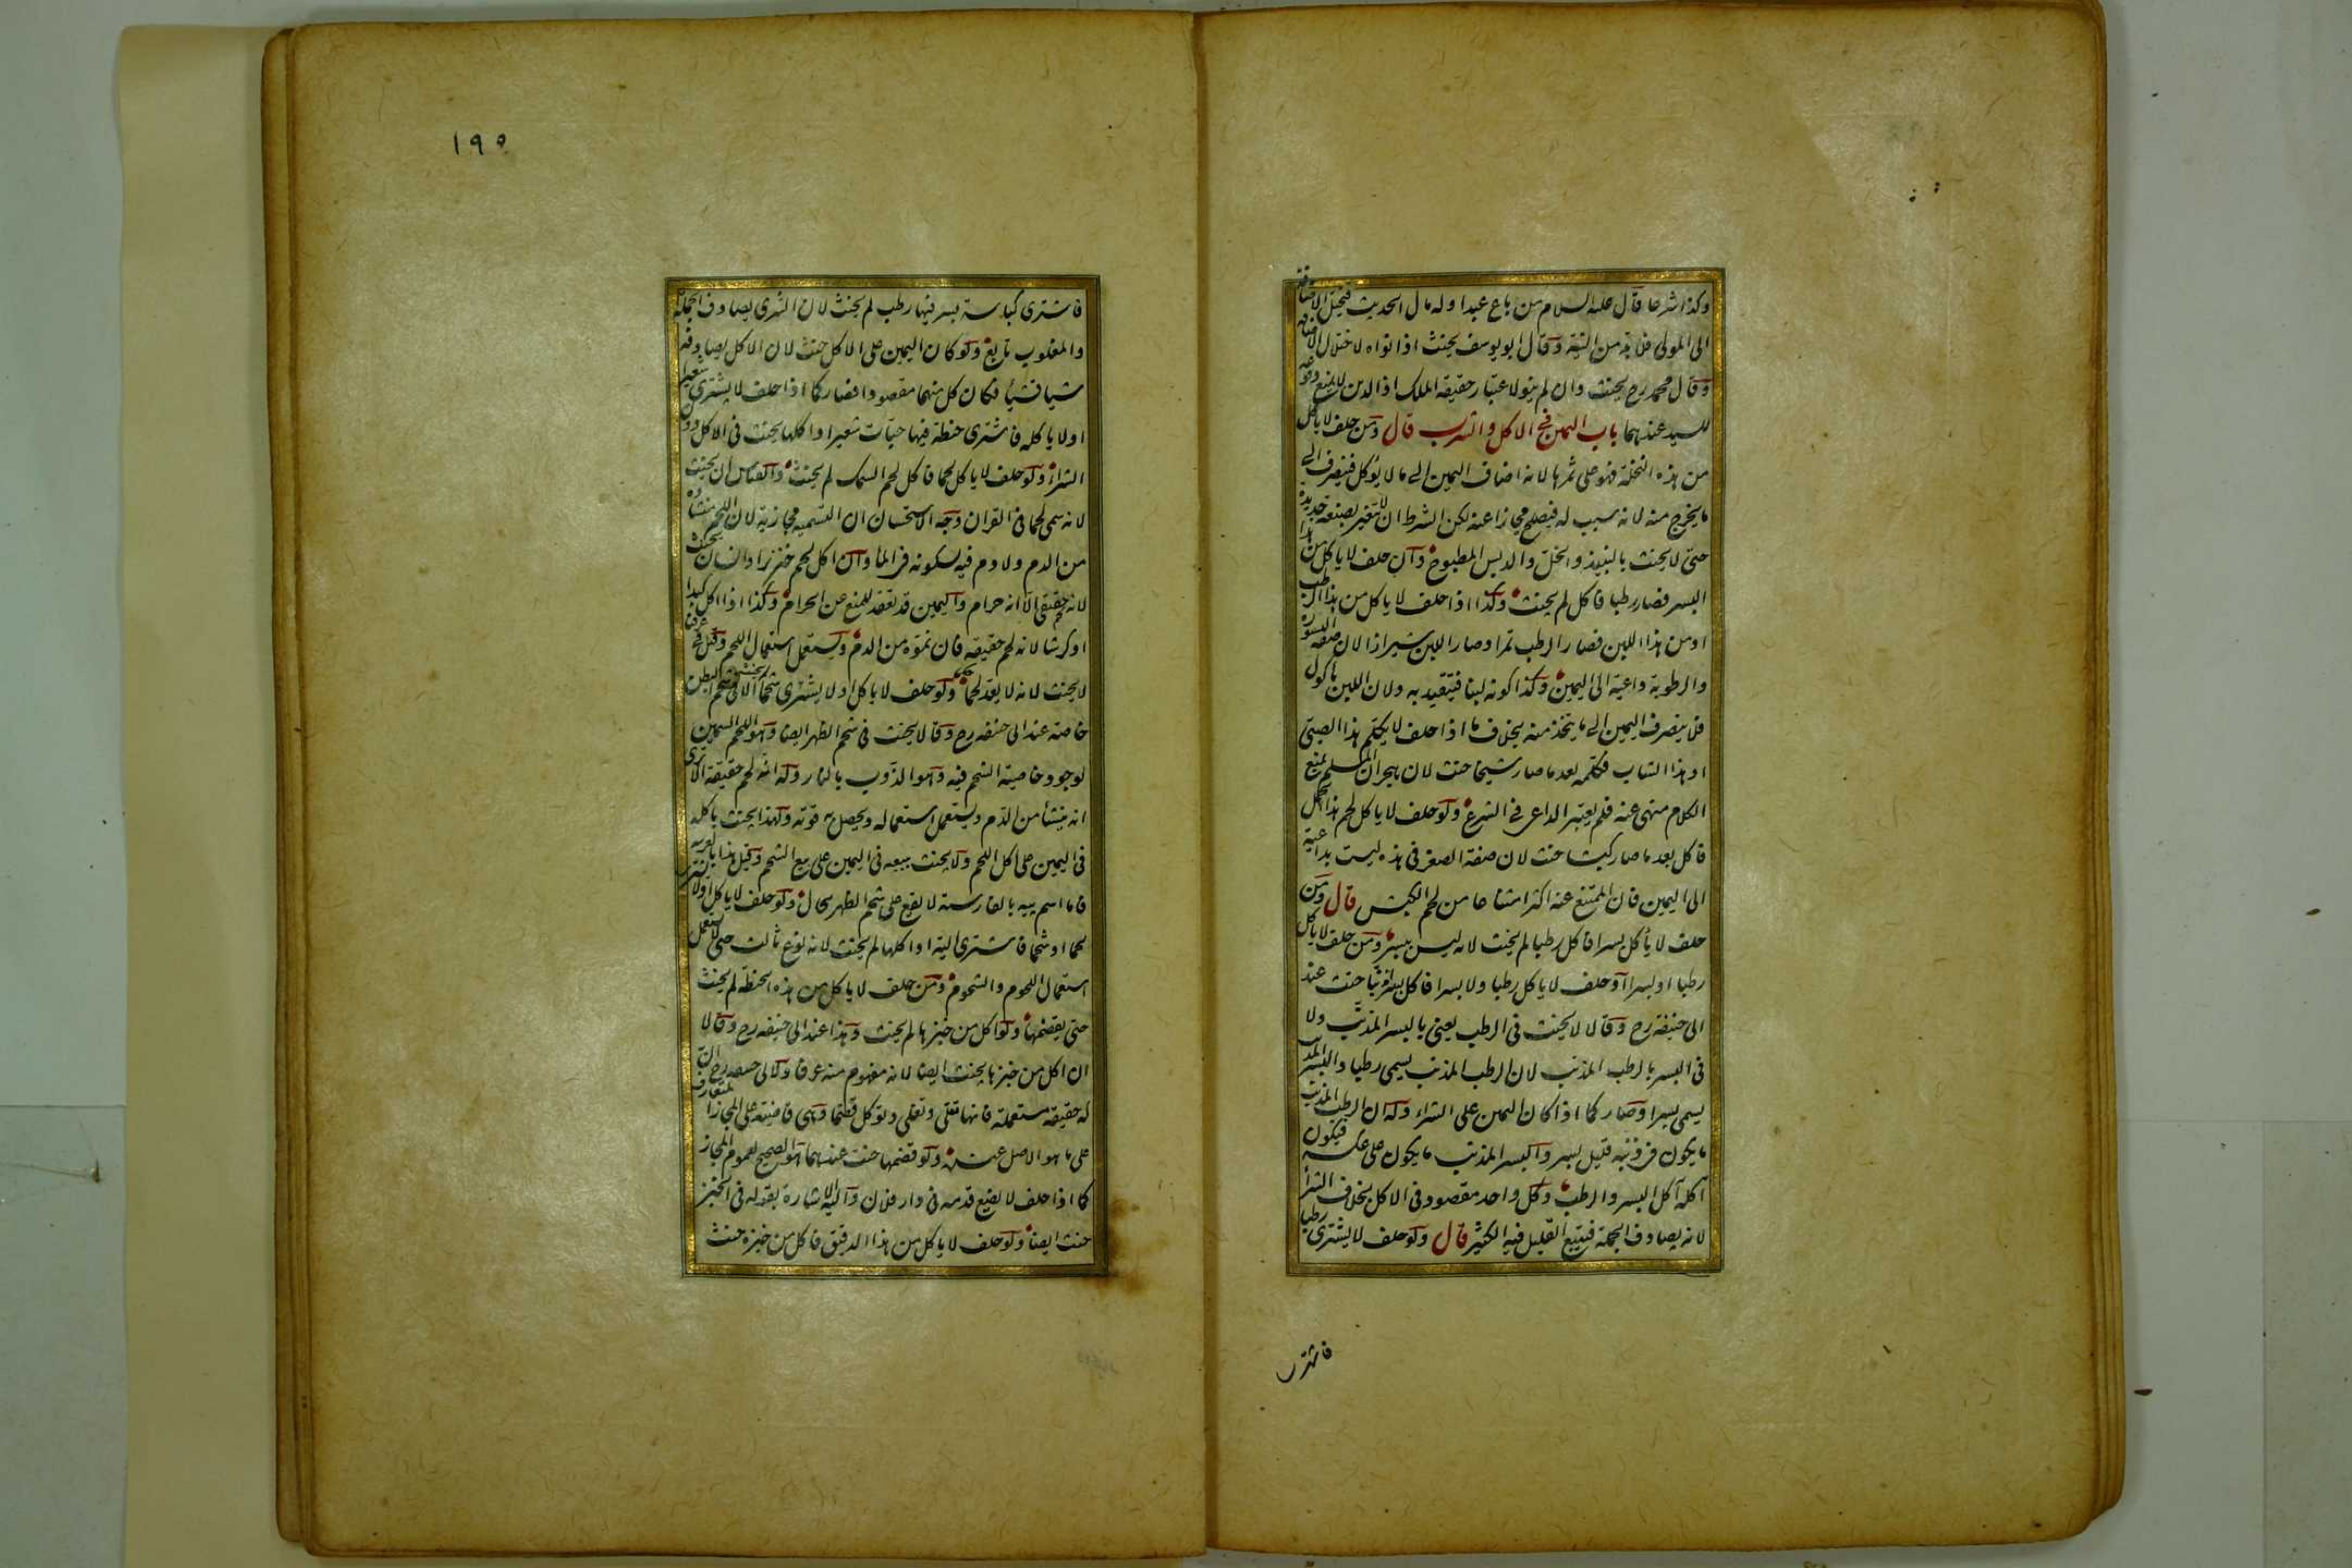 وكذا شرعا قال عليه السلام من باع عبدا وله مال الحديث فتختل الاضافة
الى المولى فلا بد من النية وقال ابو يوسف يحنث اذا نواه لاختلال الاضافة
وقال محمد رح يحنث وان لم ينو لاعتبار حقيقة الملك اذ الدين لا يمنع وقوعه
للسيد عندهما باب اليمين في الاكل والشرب قال ومن حلف لا ياكل
من هذه النخلة فهو على ثمرها لانه اضاف اليمين الى ما لا يؤكل فينصرف الى
ما يخرج منه لانه سبب له فيصلح مجازا عنه لكن الشرط ان لا يتغير بصنعة جديدة
حتى لا يحنث بالنبيذ والخل والدبس المطبوخ وان حلف لا ياكل من هذا
البسر فصار رطبا فاكل لم يحنث وكذا اذا حلف لا ياكل من هذا الرطب
او من هذا اللبن فصار الرطب تمرا وصار اللبن شيرازا لان صفة البسورة
والرطوبة داعية الى اليمين وكذا كونه لبنا فيتقيد به ولان اللبن ماكول
فلا ينصرف اليمين الى ما يتخذ منه بخلاف ما اذا حلف لا يكلم هذا الصبي
او هذا الشاب فكلمه بعد ما صار شيخا حنث لان هجران المسلم بمنع
الكلام منهى عنه فلم يعتبر الداعى فى الشرع ولو حلف لا ياكل لحم هذا الحمل
فاكل بعد ما صار كبشا حنث لان صفة الصغر فى هذه ليست بداعية
الى اليمين فان الممتنع عنه اكثر امتناعا من لحم الكبش قال ومن
حلف لا يأكل بسرا فاكل رطبا لم يحنث لانه ليس ببسر ومن حلف لا ياكل
رطبا او بسرا او حلف لا ياكل رطبا ولا بسرا فاكل مذنبا حنث عند
ابى حنيفة رح وقالا لا يحنث فى الرطب يعنى بالبسر المذنب ولا
فى البسر بالرطب المذنب لان الرطب المذنب يسمى رطبا والبسر المذنب
يسمى بسرا وصار كما اذا كان اليمين على الشراء وله ان الرطب المذنب
ما يكون فى ذنبه قليل بسر والبسر المذنب ما يكون على عكسه فيكون
آكله آكل البسر والرطب وكل واحد مقصود فى الاكل بخلاف الشراء
لانه يصادف الجملة فيتبع القليل فيه الكثير قال ولو حلف لا يشترى رطبا
فاشترى
١٩٥
فاشترى كباسة بسر فيها رطب لم يحنث لان الشرى يصادف الجملة
والمغلوب تابع ولو كان اليمين على الاكل حنث لان الاكل يصادفه
شيا فشيأ فكان كل منهما مقصودا فصار كما اذا حلف لا يشترى شعيرا
او لا ياكله فاشترى حنطة فيها حبات شعير او اكلها يحنث فى الاكل دون
الشراء ولو حلف لا ياكل لحما فاكل لحم السمك لم يحنث والقياس ان يحنث
لانه سمى لحما فى القران وجه الاستحسان ان التسمية مجازية لان اللحم منشأه
من الدم ولا دم فيه لسكونه فى الماء وان اكل لحم خنزير او انسان يحنث
لانه لحم حقيقى الا انه حرام واليمين قد تعقد للمنع عن الحرام وكذا اذا اكل كبدا
او كرشا لانه لحم حقيقة فان نموه من الدم ويستعمل استعمال اللحم وقيل فى عرفنا
لا يحنث لانه لا يعد لحما ولو حلف لا ياكل او لا يشترى شحما لم يحنث الا فى شحم البطن
خاصة عند ابى حنيفه رح وقالا يحنث فى شحم الظهر ايضا وهو اللحم السمين
لوجود خاصية الشحم فيه وهو الذوب بالنار وله انه لحم حقيقة الا ترى
انه ينشأ من الدم ويستعمل استعماله ويحصل به قوته ولهذا يحنث باكله
فى اليمين على اكل اللحم ولا يحنث ببيعه فى اليمين على بيع الشحم وقيل هذا بالعربيه
فاما اسم پيه بالفارسية لا يقع على شحم الظهر بحال ولو حلف لا ياكل او لا يشترى
لحما او شحما فاشترى الية او اكلها لم يحنث لانه نوع ثالث حتى لا يستعمل
استعمال اللحوم والشحوم ومن حلف لا ياكل من هذه الحنطة لم يحنث
حتى يقضمها ولو اكل من خبزها لم يحنث وهذا عند ابى حنيفه رح وقالا
ان اكل من خبزها يحنث ايضا لانه مفهوم منه عرفا ولابى حنيفه رح ان
له حقيقة مستعملة فانها تقلى وتغلى وتؤكل قضما وهى قاضية على المجاز المتعارف
على ما هو الاصل عنده ولو قضمها حنث عندهما هو الصحيح لعموم المجاز
كما اذا حلف لا يضع قدمه فى دار فلان واليه الاشارة بقوله فى الخبز
حنث ايضا ولو حلف لا ياكل من هذا الدقيق فاكل من خبزه حنث